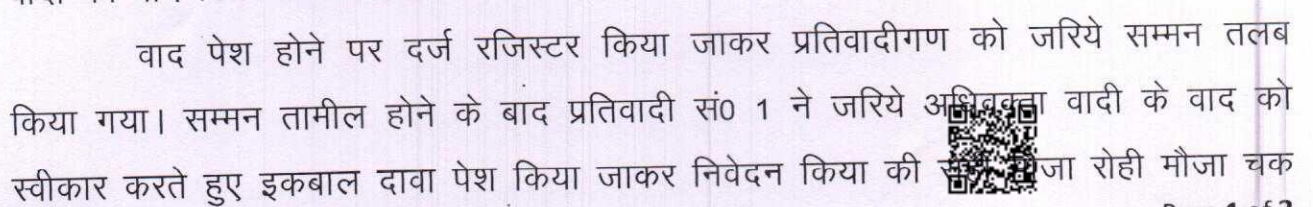 वाद पेश होने पर दर्ज रजिस्टर किया जाकर प्रतिवादीगण को जरिये सम्मन तलब
किया गया। सम्मन तामील होने के बाद प्रतिवादी सं0 1 ने जरिये अधिवक्ता वादी के वाद को
स्वीकार करते हुए इकबाल दावा पेश किया जाकर निवेदन किया की रोही मौजा चक